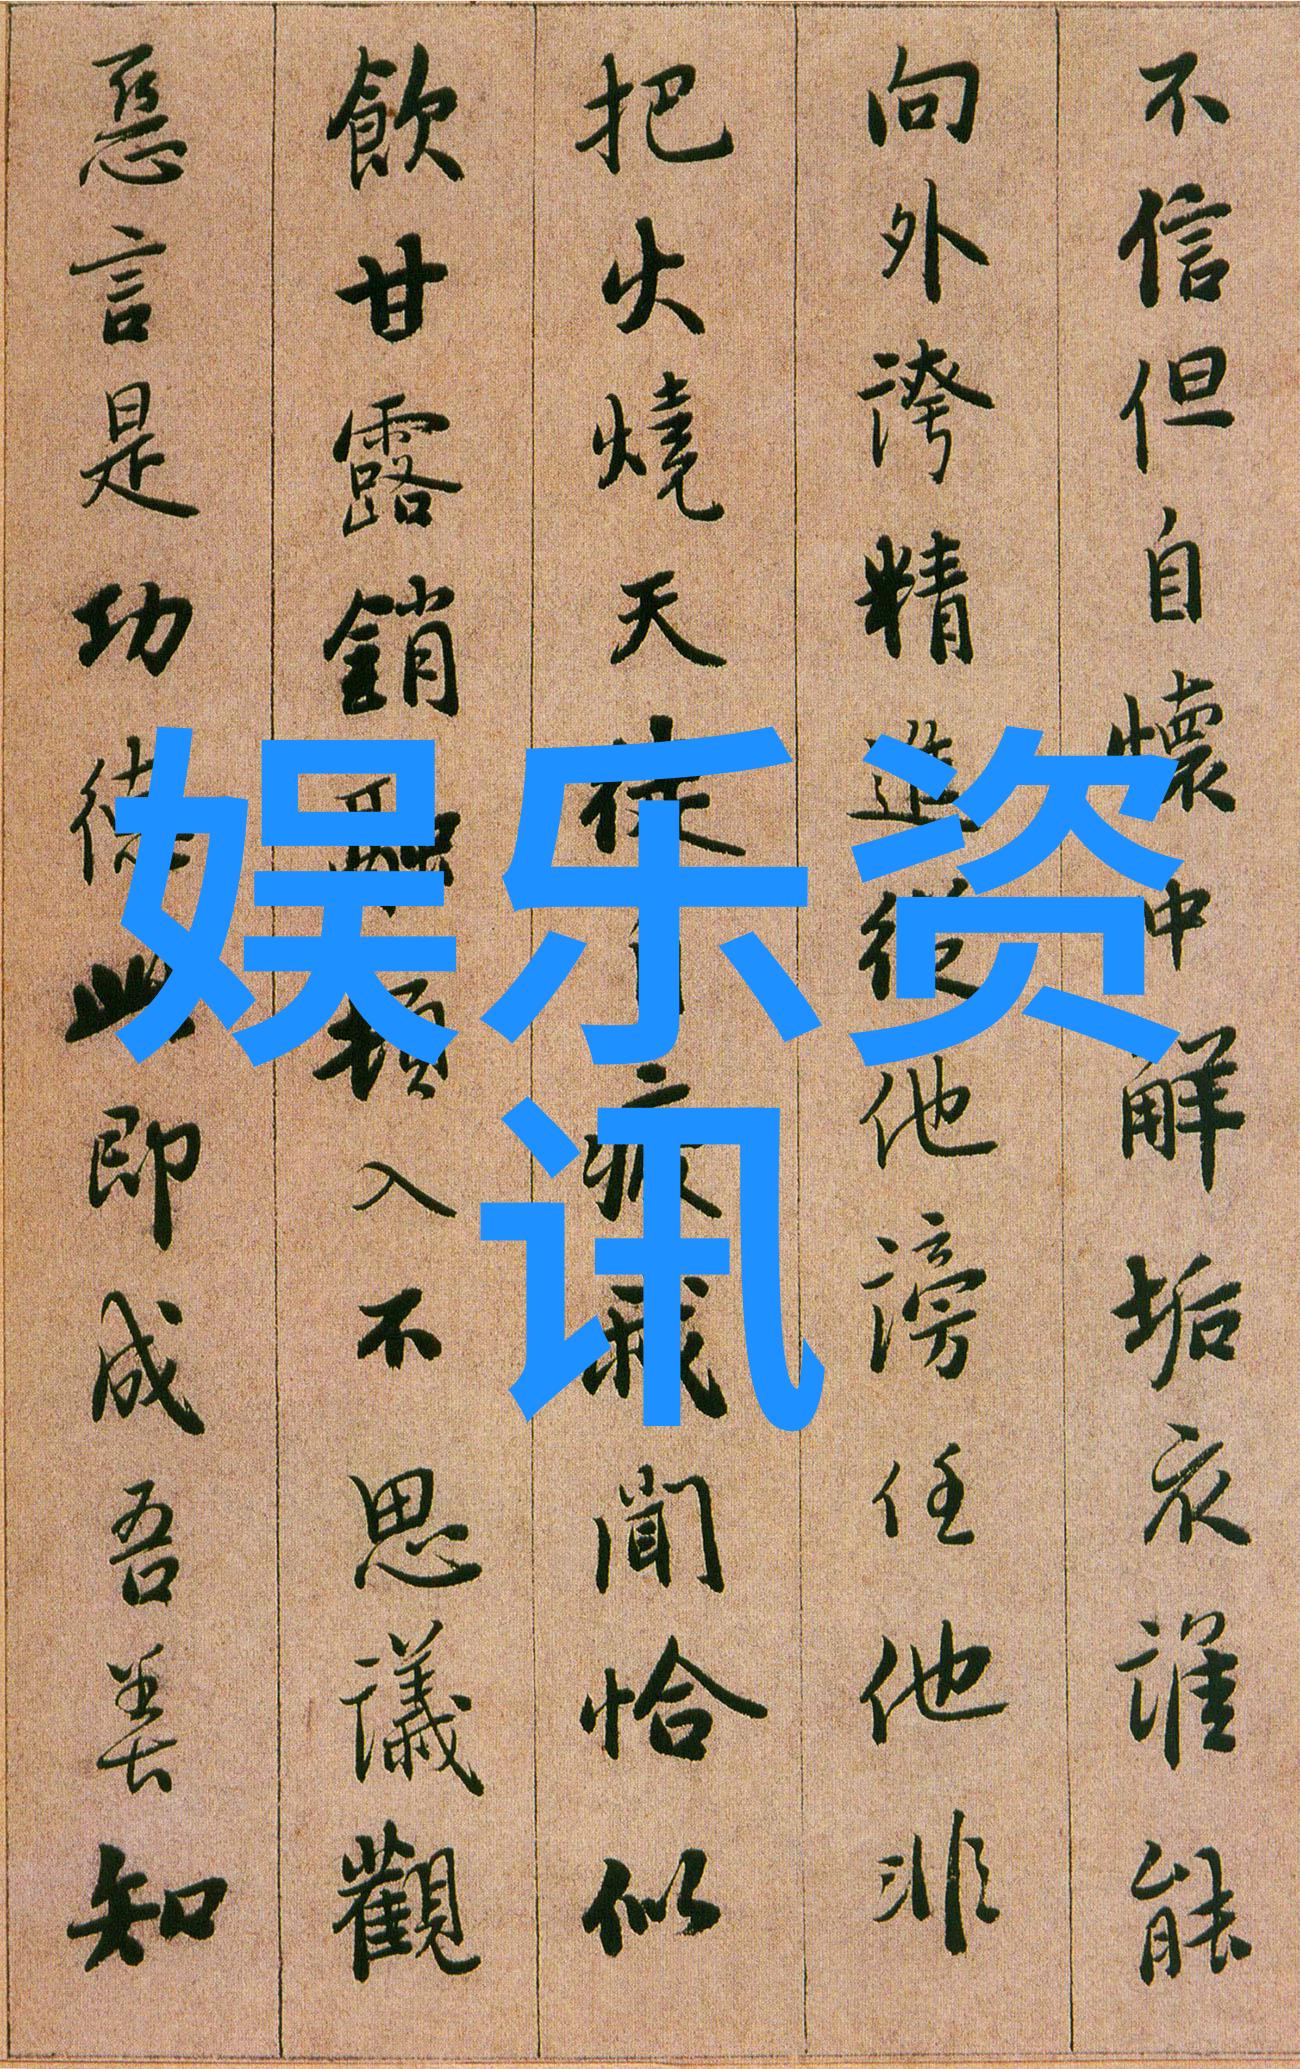 不信但自懷中解垢衣誰能
向外誇精進從他謗任他非
把火燒天徒疲我聞恰似
飲甘露銷融頓入不思議觀
惡言是功德此即成吾善知
娱乐资
讯